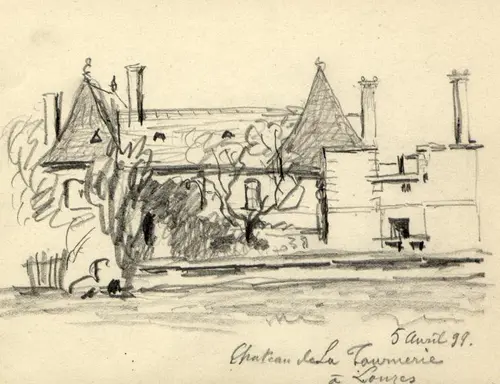 5 Avril 99.
Chateau de La Tournerie
à Louzes